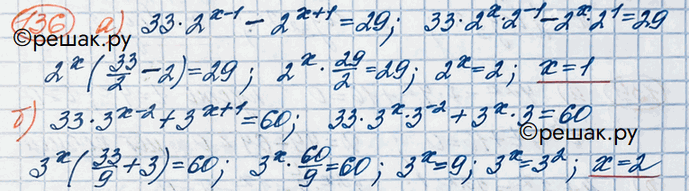 136 а) 33·2^(x-1) - 2^(x+1) = 29; 33·2^x·2^(-1) - 2^x·2^1 = 29
©reшак.ру
2^x (33/2 - 2) = 29; 2^x · 29/2 = 29; 2^x = 2; x = 1
б) 33·3^(x-2) + 3^(x+1) = 60; 33·3^x·3^(-2) + 3^x·3 = 60
©reшак.ру
3^x (33/9 + 3) = 60; 3^x · 60/9 = 60; 3^x = 9; 3^x = 3^2; x = 2